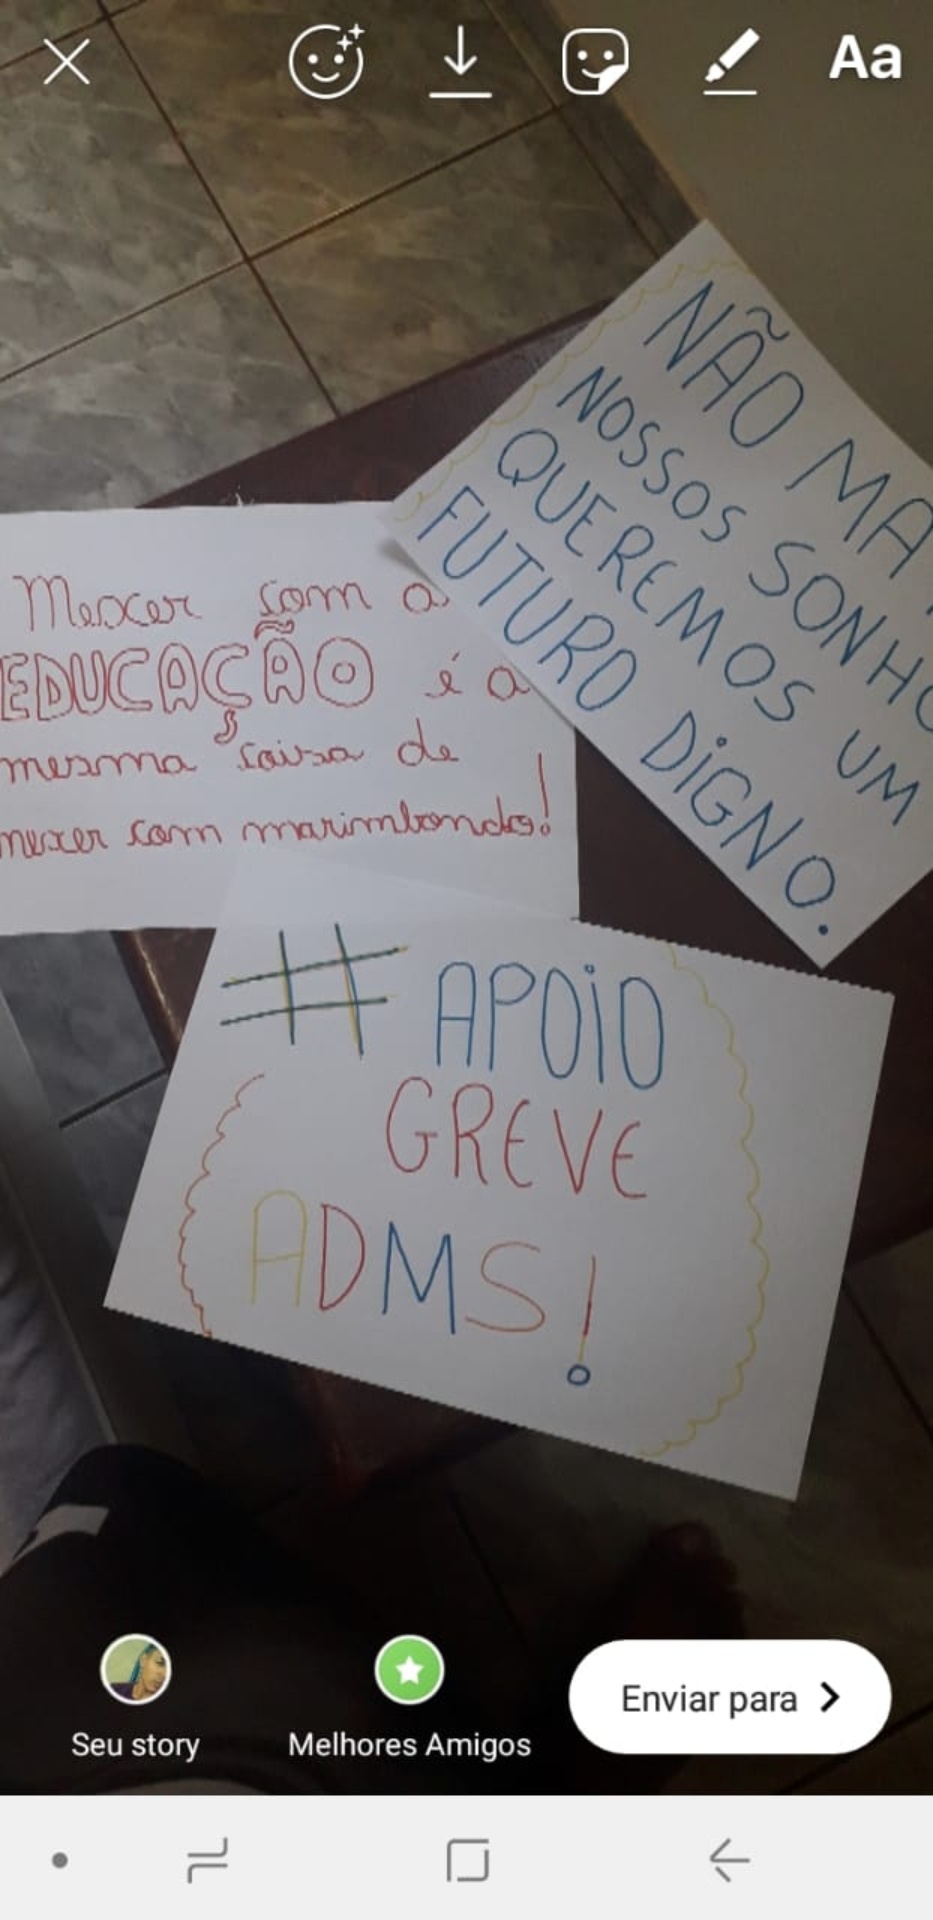 Aa
NÃO MA
NOSSOS SONHO
QUEREMOS UM
FUTURO DIGNO.
Mexer com a
EDUCAÇÃO é a
mesma coisa de
mexer com marimbondo!
# APOIO
GREVE
ADMS!
Seu story
Melhores Amigos
Enviar para